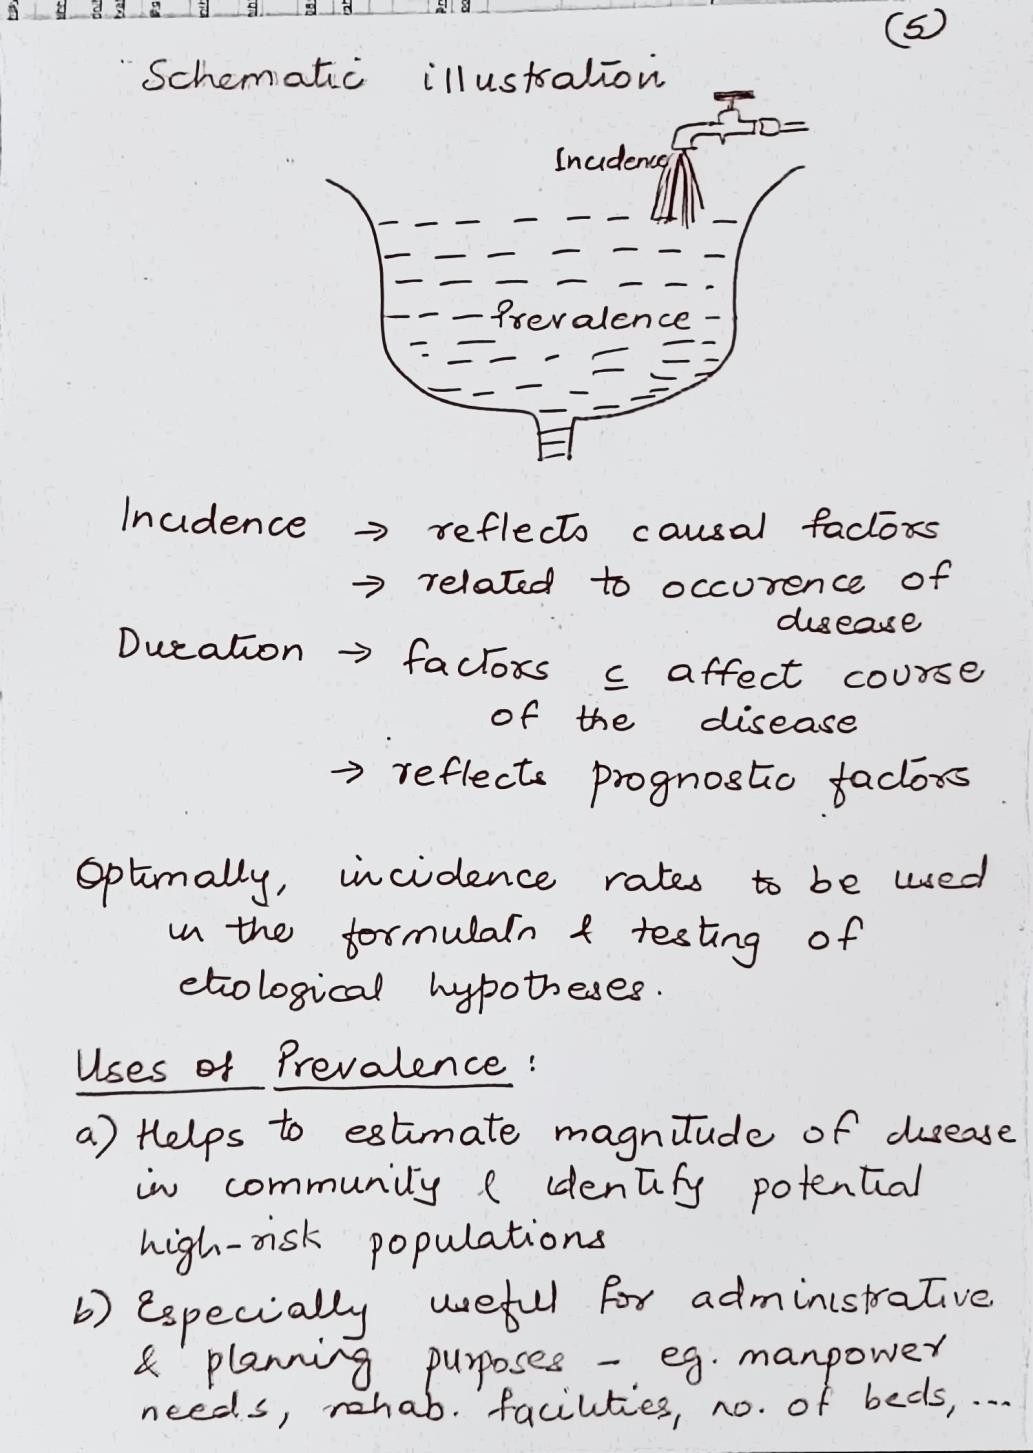 (5)
Schematic illustration
Incidence
Prevalence
Incidence → reflects causal factors
→ related to occurence of
disease
Duration → factors c̲ affect course
of the disease
→ reflects prognostic factors
Optimally, incidence rates to be used
in the formulatn & testing of
etiological hypotheses.
Uses of Prevalence :
a) Helps to estimate magnitude of disease
in community & identify potential
high-risk populations
b) Especially useful for administrative
& planning purposes - eg. manpower
needs, rehab. facilities, no. of beds, ...